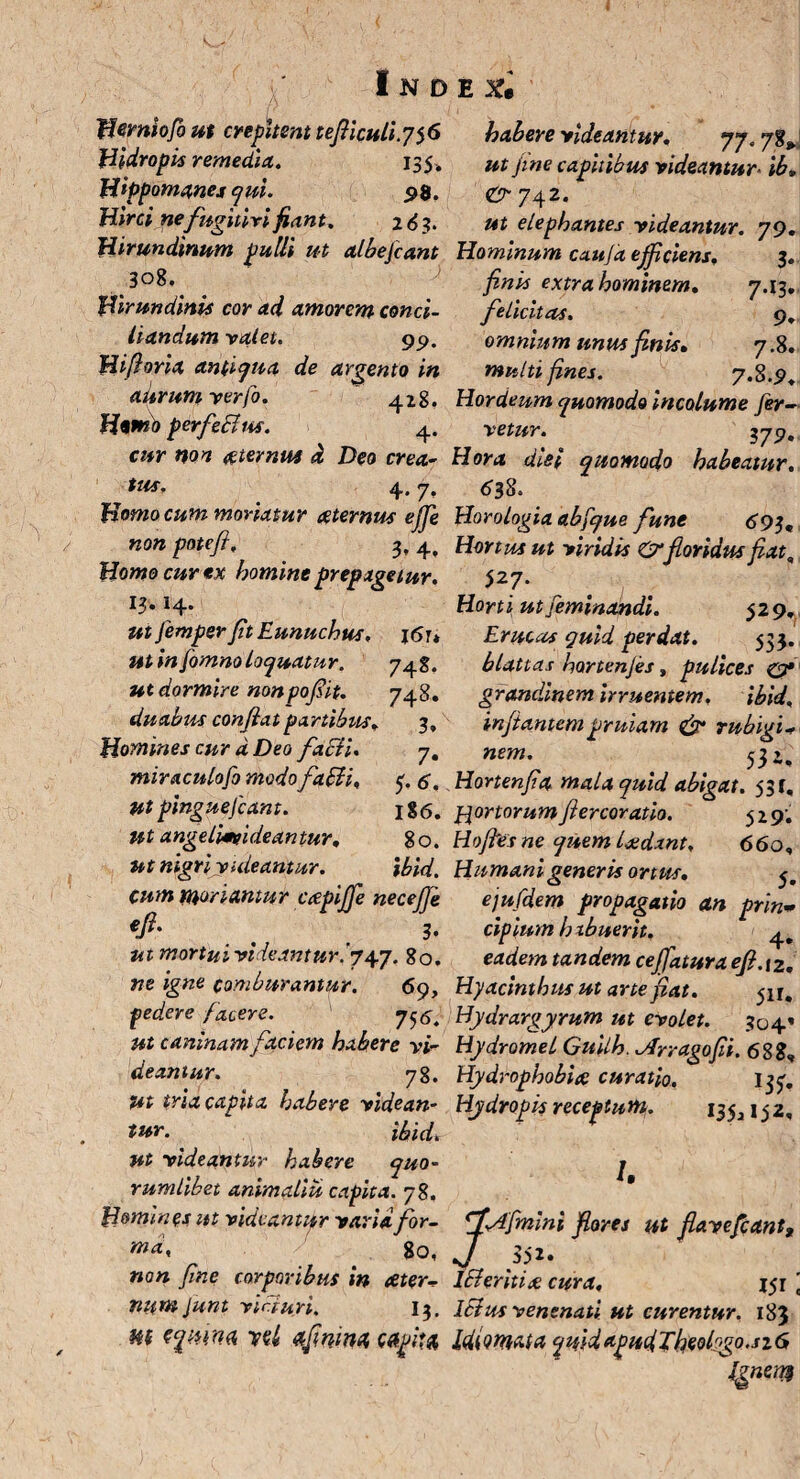 INDEX.
Hernioso ut crepitent testiculi. 756
Hidropis remedia. 135.
Hippomanes qui. 98.
Hirci ne fugitivi fiant. 263.
Hirundinum pulli ut albescant
308.
Hirundinis cor ad amorem conci-
liandum valet. 99.
Historia antiqua de argento in
aurum verso. 428.
Homo perfectus. 4.
cur non æternus à Deo crea-
tus. 4. 7.
Homo cum moriatur æternus esse
non potest. 3, 4.
Homo cur ex homine prepagetur.
13. 14.
ut semper sit Eunuchus. 161.
ut in somno loquatur. 748.
ut dormire non possit. 748.
duabus constat partibus. 3.
Homines cur à Deo facti. 7.
miraculoso modo facti. 5. 6.
ut pinguescant. 186.
ut angeli videantur. 80.
ut nigri videantur. ibid.
cum moriantur cæpisse necesse
est. 3.
ut mortui videantur. 747. 80.
ne igne comburantur. 69,
pedere facere. 756.
ut caninam faciem habere vi-
deantur. 78.
ut tria capita habere videan-
tur. ibid.
ut videantur habere quo-
rumlibet animaliū capita. 78.
Homines ut videantur varia for-
ma. 80.
non sine corporibus in æter-
num sunt victuri. 13.
ut equina vel asinina capita
habere videantur. 77. 78.
ut sine capitibus videantur. ib.
& 742.
ut elephantes videantur. 79.
Hominum causa efficiens. 3.
finis extra hominem. 7.13.
felicitas. 9.
omnium unus finis. 7.8.
multi fines. 7.8.9.
Hordeum quomodo incolume ser-
vetur. 379.
Hora diei quomodo habeatur.
638.
Horologia absque fune 693.
Hortus ut viridis & floridus fiat.
527.
Horti ut seminandi. 529.
Erucas quid perdat. 533.
blattas hortenses, pulices &
grandinem irruentem. ibid.
instantem pruiam & rubigi-
nem. 532.
Hortensia mala quid abigat. 531.
Hortorum stercoratio. 529.
Hostes ne quem lædant. 660.
Humani generis ortus. 5.
ejusdem propagatio an prin-
cipium habuerit. 4.
eadem tandem cessatura est. 12.
Hyacinthus ut arte fiat. 511.
Hydrargyrum ut evolet. 304.
Hydromel Guilh. Arragosii. 688.
Hydrophobiæ curatio. 135.
Hydropis receptum. 135, 152.
I.
JAsmini flores ut flavescant,
352.
Icteritiæ cura. 151
Ictus venenati ut curentur. 183
Idiomata quid apud Theologo. 526
Ignem